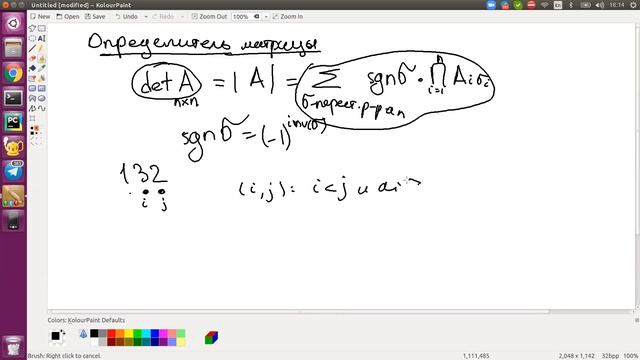 Untitled [modified] – KolourPaint
18:14
New Open Save Undo Redo Cut Copy Paste Zoom Out 100% Zoom In
Определитель матрицы
det A = | A | = Σ sgnσ · ∏ A i σi
n×n σ-перест. р-ра n i=1 n
sgnσ = (-1)^inv(σ)
132 (i,j): i<j и ai >
i j
Colors: KolourPaint Defaults
Brush: Right click to cancel. 1,111,485 2,048 x 1,142 32bpp 100%